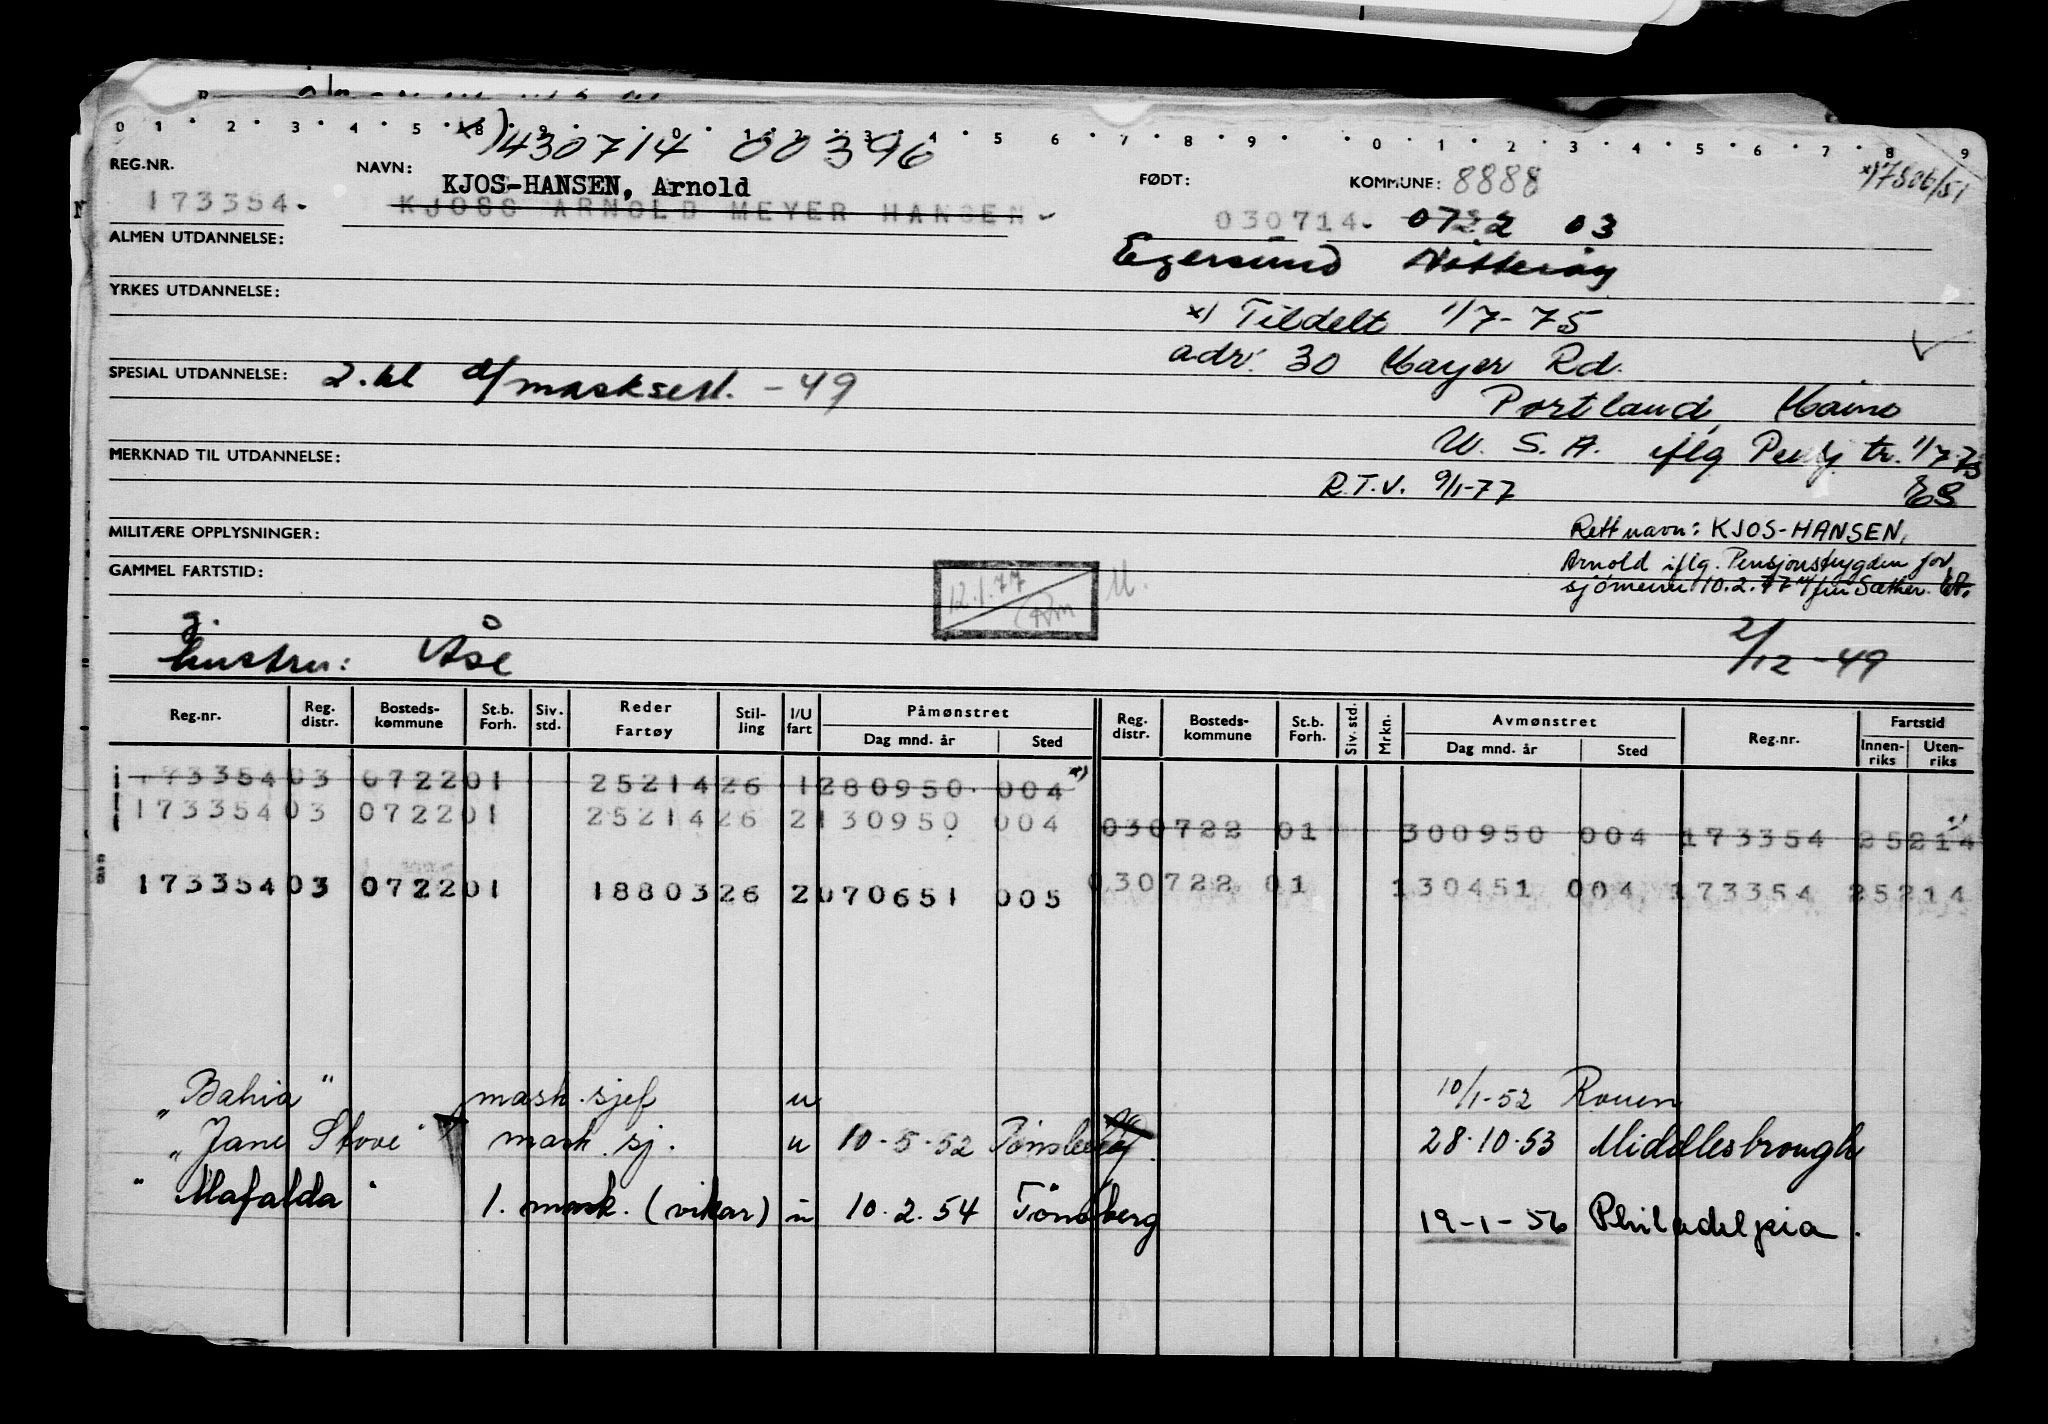 0 1 2 3 4 5 6 7 8 9 0 1 2 3 4 5 6 7 8 9
x) 430714 00396
REG.NR. NAVN: FØDT: KOMMUNE: 8888
KJOS-HANSEN, Arnold
173354. KJOSS ARNOLD MEYER HANSEN 030714. 0722 03
ALMEN UTDANNELSE: Egersund Nøtterøy
YRKES UTDANNELSE: x) Tildelt 1/7-75
adr. 30 Mayer Rd.
SPESIAL UTDANNELSE: 2.kl d/masksert. -49
Portland, Maine
MERKNAD TIL UTDANNELSE: U.S.A. iflg Pensj tr. 1/7-75
R.T.V. 9/1-77 ES
MILITÆRE OPPLYSNINGER: Rett navn: KJOS-HANSEN,
GAMMEL FARTSTID: Arnold iflg. Pensjonstrygden for
sjømenn 10.2.77 v/fru Sæther.
12.1.77
g.
hustru: Åse 2/12-49
Reg.nr. Reg. distr. Bosteds-kømmune St.b. Forh. Siv. std. Reder Fartøy Stil-ling I/U fart Påmønstret Dag mnd. år Sted Reg. distr. Bosteds-kommune St.b. Forh. Siv. std. Mrkn. Avmønstret Dag mnd. år Sted Reg.nr. Fartstid Innen-riks Uten-riks
173354 03 0722 01 25214 26 1 280950. 004 x)
173354 03 0722 01 25214 26 2 130950 004 03 0722 01 300950 004 173354 25214
173354 03 0722 01 18803 26 2 070651 005 03 0722 01 130451 004 173354 25214
"Bahia" mask.sjef u 10/1-52 Rouen
"Jane Stove" mask. sj. u 10-5-52 Tønsberg. 28.10.53 Middlesbrough
"Mafalda" 1. mask. (vikar) u 10.2.54 Tønsberg 19-1-56 Philadelpia.